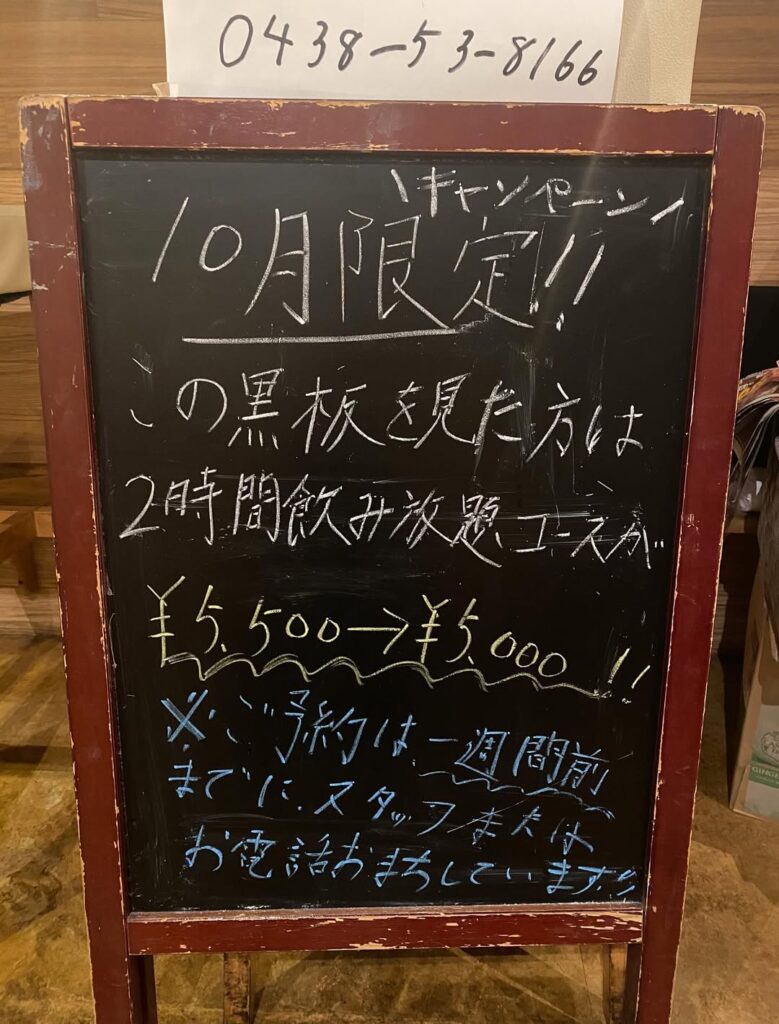 0438-53-8166
\キャンペーン/
10月限定!!
この黒板を見た方は
2時間飲み放題コースが
¥5,500→¥5,000!!
※ご予約は、一週間前
までに、スタッフまたは
お電話おまちしています!!